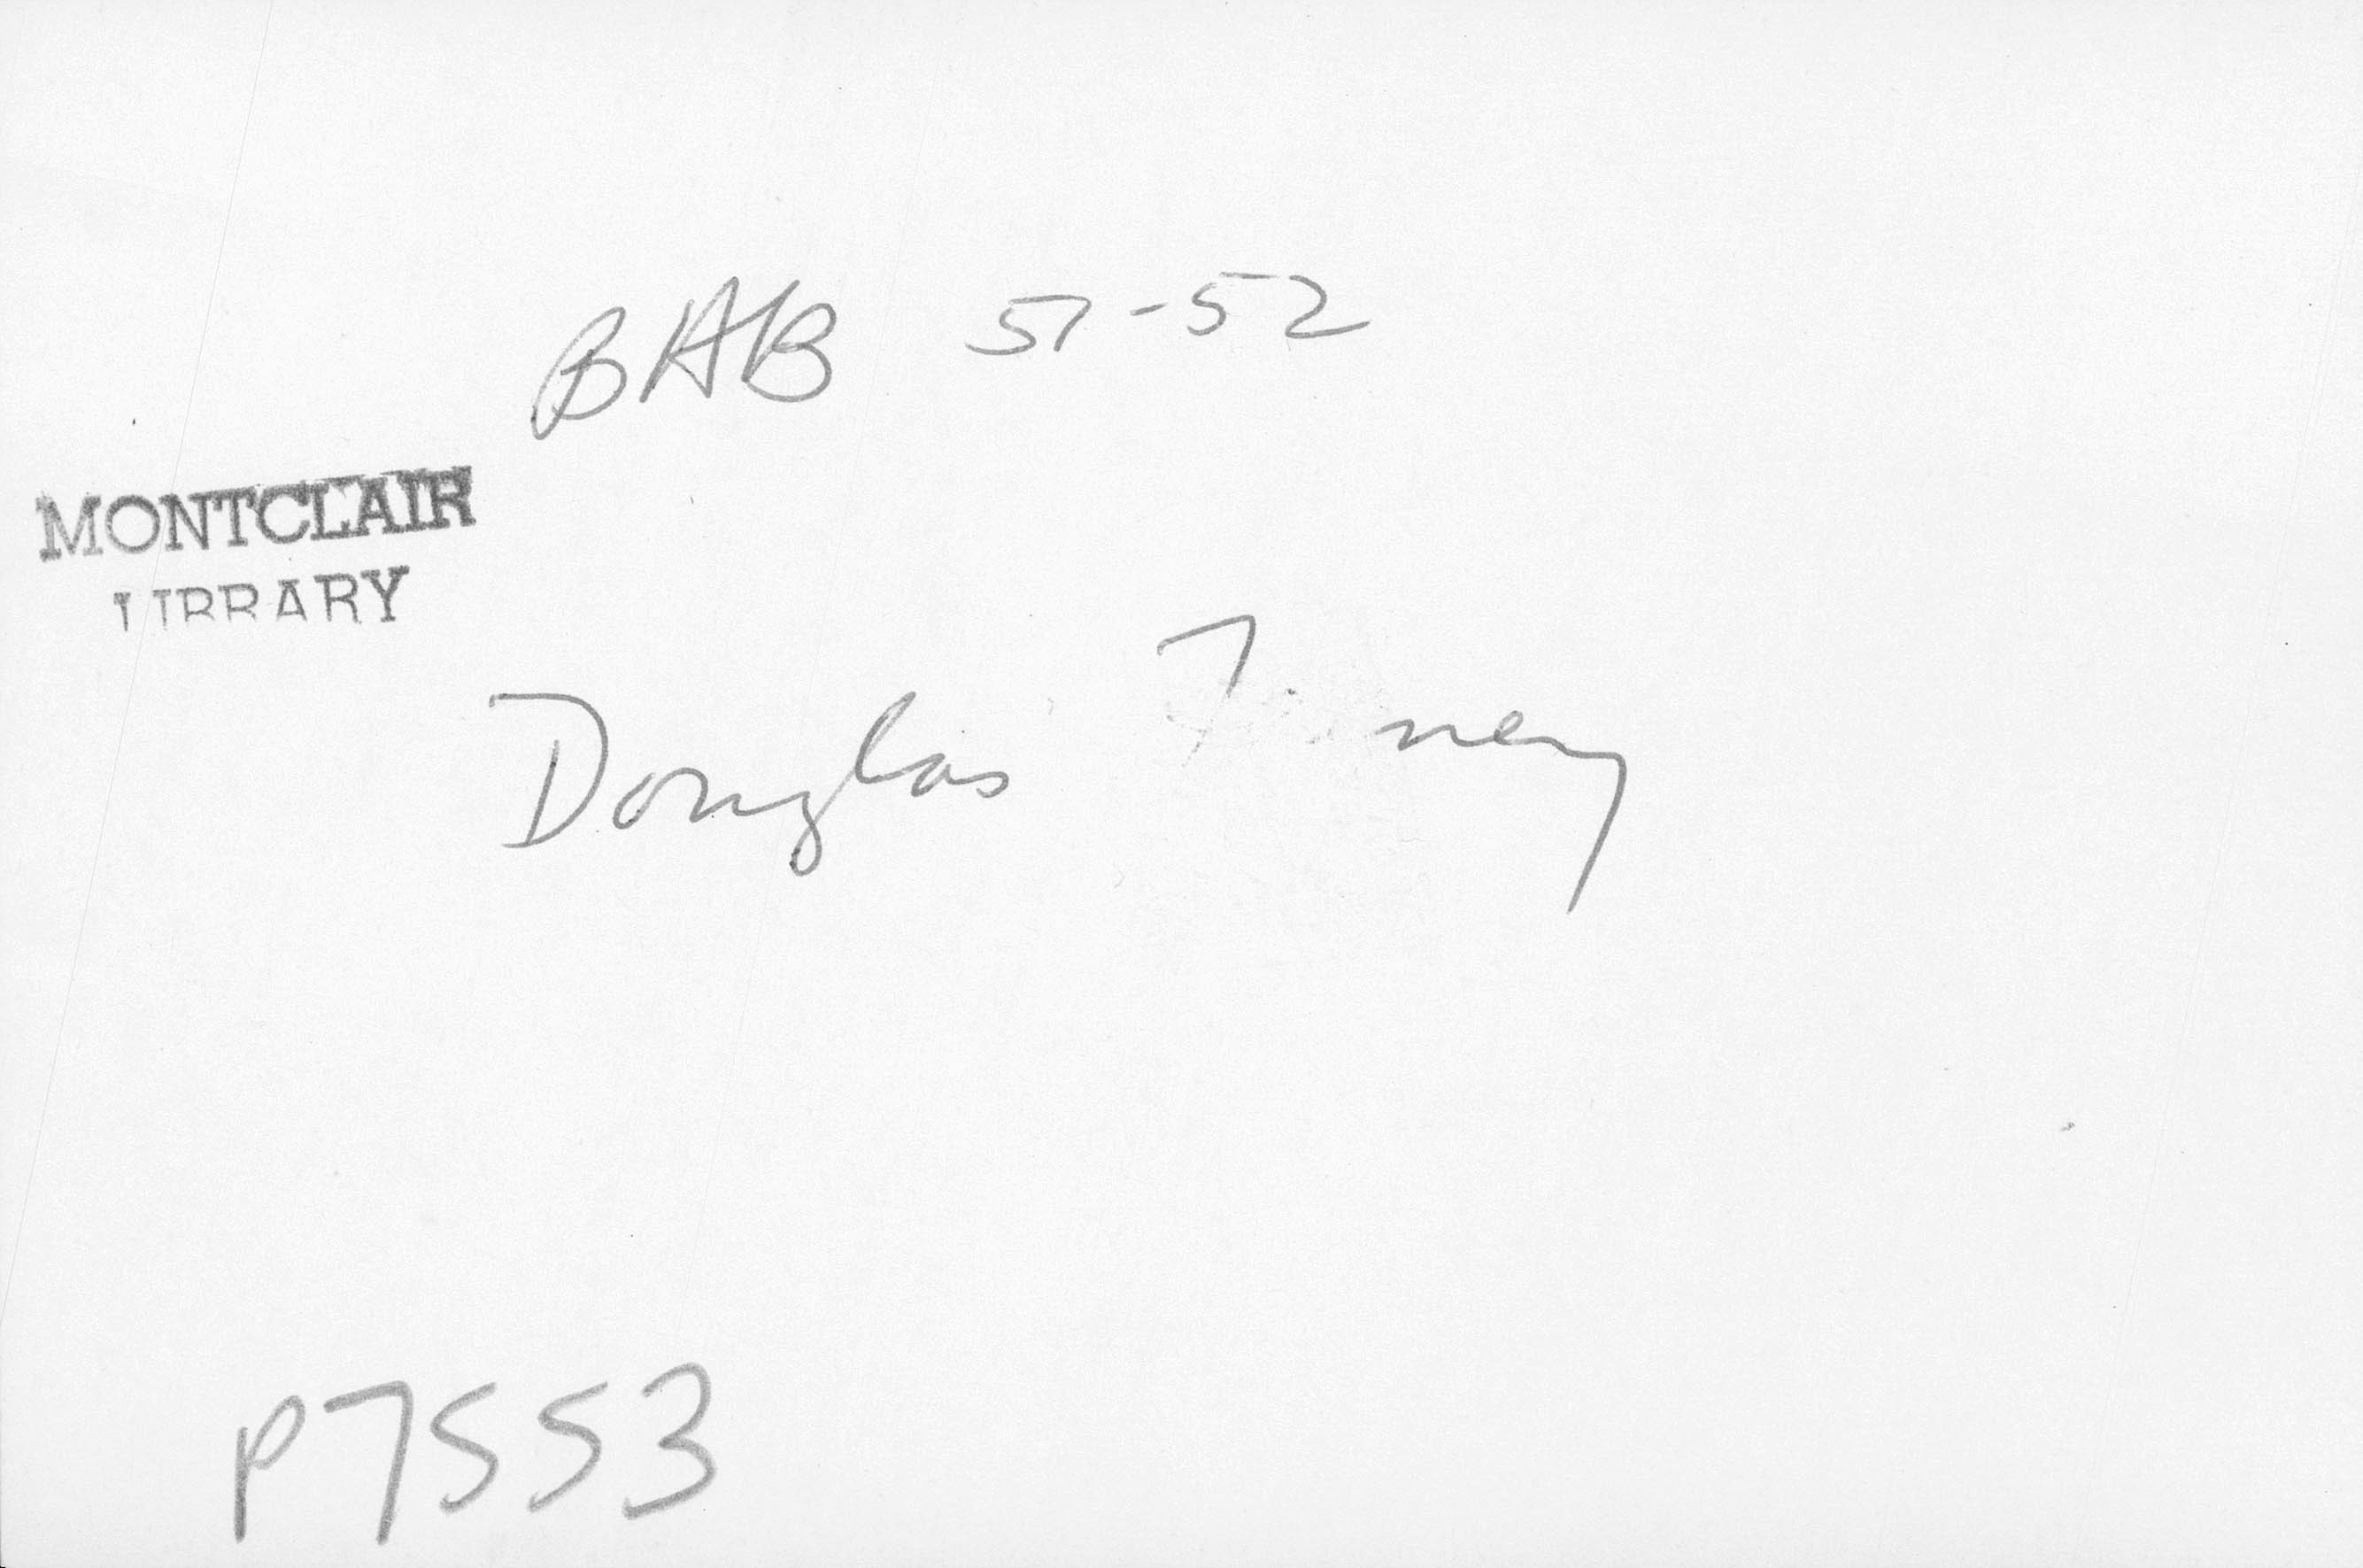 BAB 51-52
MONTCLAIR
LIBRARY
Douglas
P7553